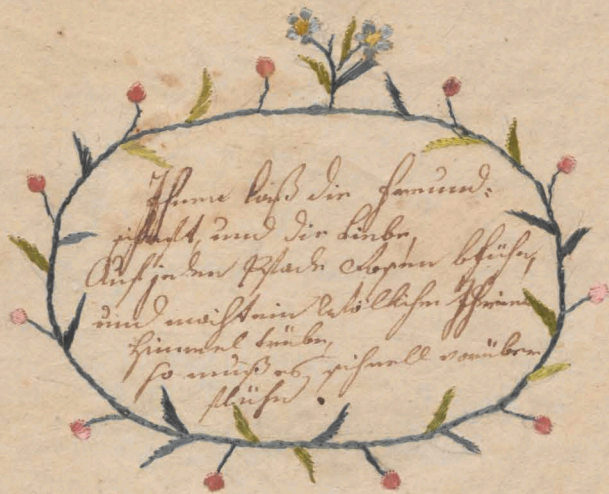 Ihnen laß die Freund=
schaft, und die Liebe,
Auf jeden Pfade Rosen blühn,
und macht ein Wölkchen Ihren
Himmel trübe,
so muß es schnell vorüber
fliehn.